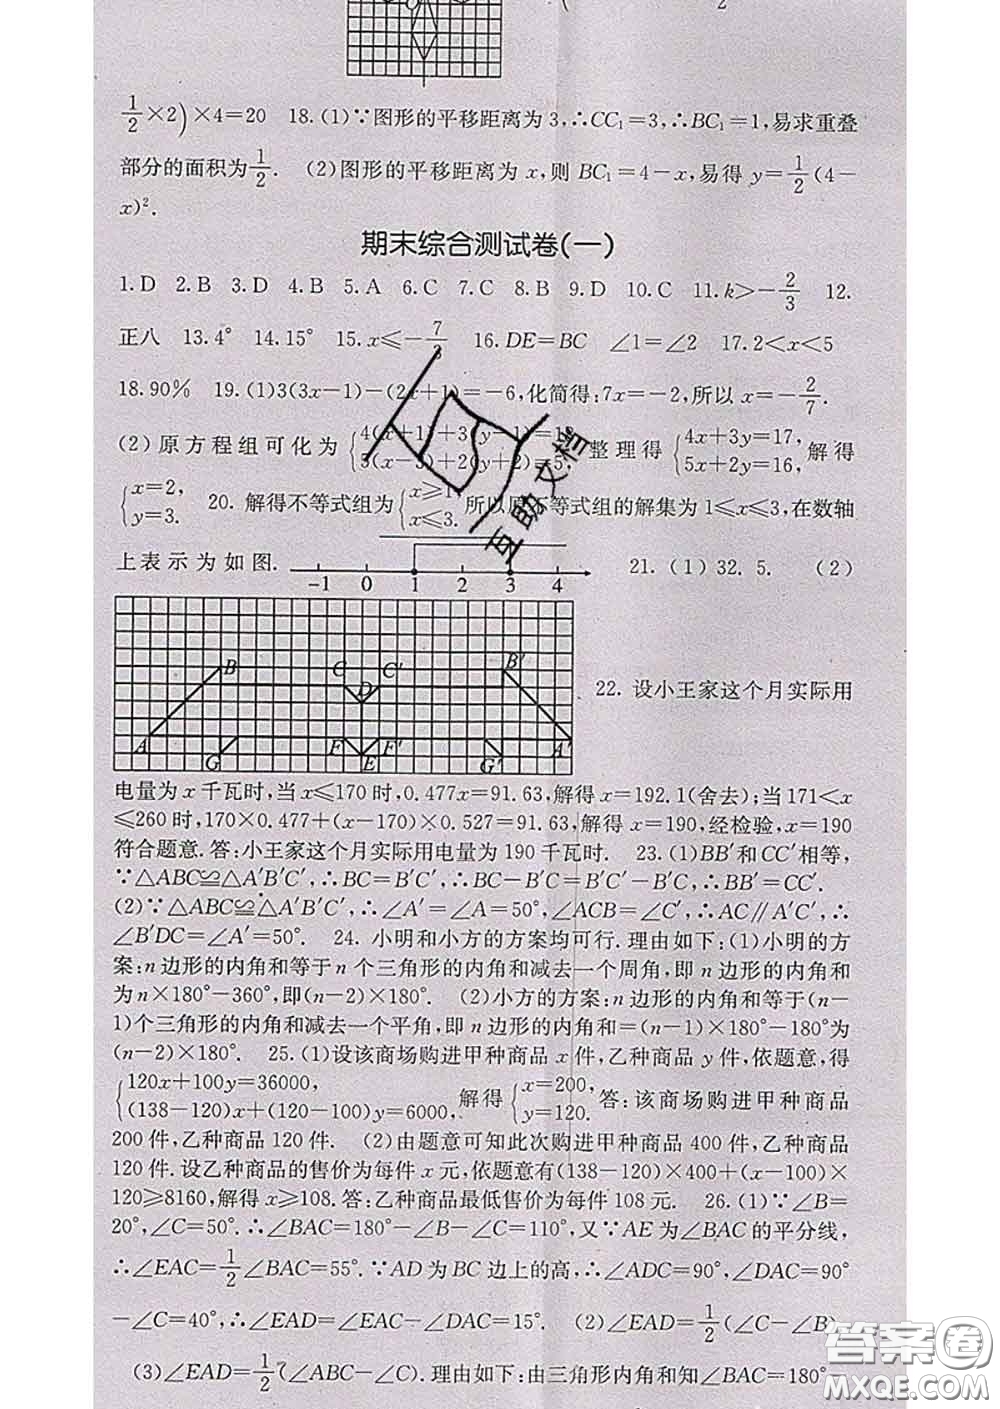 O
( 2
1/2×2)×4=20 18.(1)∵图形的平移距离为3,∴CC₁=3,∴BC₁=1,易求重叠
部分的面积为1/2. (2)图形的平移距离为x,则BC₁=4-x,易得y=1/2(4-
x)².
期末综合测试卷(一)
1.D 2.B 3.D 4.B 5.A 6.C 7.C 8.B 9.D 10.C 11.k>-2/3 12.
正八 13.4° 14.15° 15.x≤-7/3 16.DE=BC ∠1=∠2 17.2<x<5
18.90% 19.(1)3(3x-1)-(2x+1)=-6,化简得:7x=-2,所以x=-2/7.
(2)原方程组可化为{4(x+1)+3(y-1)= 3(x-3)+2(y+2)= 整理得{4x+3y=17, 5x+2y=16,解得
{x=2, y=3. 20.解得不等式组为{x≥1, x≤3.所以原不等式组的解集为1≤x≤3,在数轴
上表示为如图. -1 0 1 2 3 4 21.(1)32.5. (2)
B C C' B'
D
A G F F' E G' A'
22.设小王家这个月实际用
电量为x千瓦时,当x≤170时,0.477x=91.63,解得x=192.1(舍去);当171<x
≤260时,170×0.477+(x-170)×0.527=91.63,解得x=190,经检验,x=190
符合题意.答:小王家这个月实际用电量为190千瓦时. 23.(1)BB′和CC′相等,
∵△ABC≌△A′B′C′,∴BC=B′C′,∴BC-B′C=B′C′-B′C,∴BB′=CC′.
(2)∵△ABC≌△A′B′C′,∴∠A′=∠A=50°,∠ACB=∠C′,∴AC∥A′C′,∴
∠B′DC=∠A′=50°. 24.小明和小方的方案均可行.理由如下:(1)小明的方
案:n边形的内角和等于n个三角形的内角和减去一个周角,即n边形的内角和
为n×180°-360°,即(n-2)×180°. (2)小方的方案:n边形的内角和等于(n-
1)个三角形的内角和减去一个平角,即n边形的内角和=(n-1)×180°-180°为
(n-2)×180°. 25.(1)设该商场购进甲种商品x件,乙种商品y件,依题意,得
{120x+100y=36000, (138-120)x+(120-100)y=6000, 解得{x=200, y=120.答:该商场购进甲种商品
200件,乙种商品120件. (2)由题意可知此次购进甲种商品400件,乙种商品
120件.设乙种商品的售价为每件x元,依题意有(138-120)×400+(x-100)×
120≥8160,解得x≥108.答:乙种商品最低售价为每件108元. 26.(1)∵∠B=
20°,∠C=50°.∴∠BAC=180°-∠B-∠C=110°,又∵AE为∠BAC的平分线,
∴∠EAC=1/2∠BAC=55°.∵AD为BC边上的高,∴∠ADC=90°,∠DAC=90°
-∠C=40°,∴∠EAD=∠EAC-∠DAC=15°. (2)∠EAD=1/2(∠C-∠B)
(3)∠EAD=1/2(∠ABC-∠C).理由如下:由三角形内角和知∠BAC=180°-
互助文档
答案圈
MXQE.COM